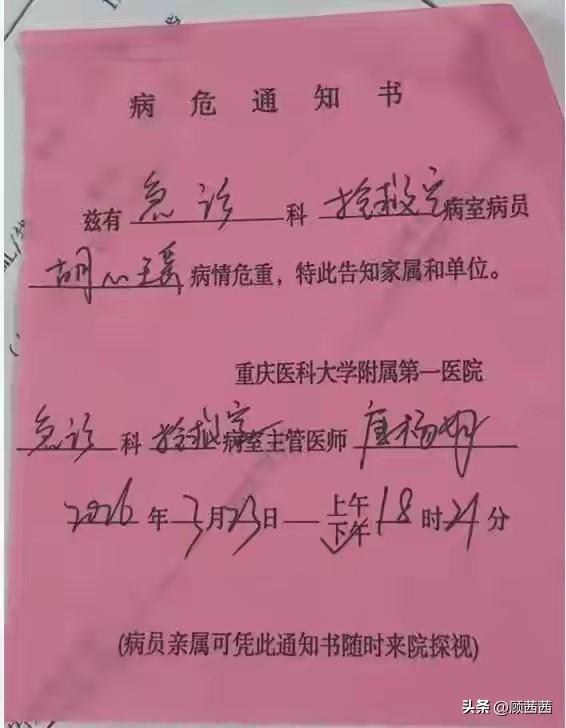 病危通知书
兹有 急诊 科 抢救室 病室病员
胡心瑶 病情危重，特此告知家属和单位。
重庆医科大学附属第一医院
急诊 科 抢救室 病室主管医师 唐杨
2026 年 3 月 23 日 上午
下午 18 时 24 分
(病员亲属可凭此通知书随时来院探视)
头条 @顾茜茜